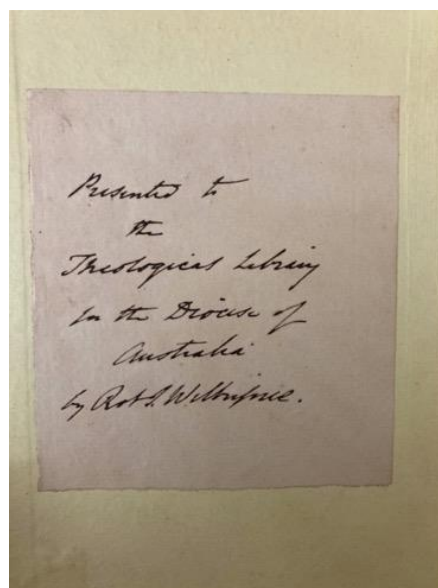 Presented to
the
Theological Library
for the Diocese of
Australia
by Rob I. Wilberforce.